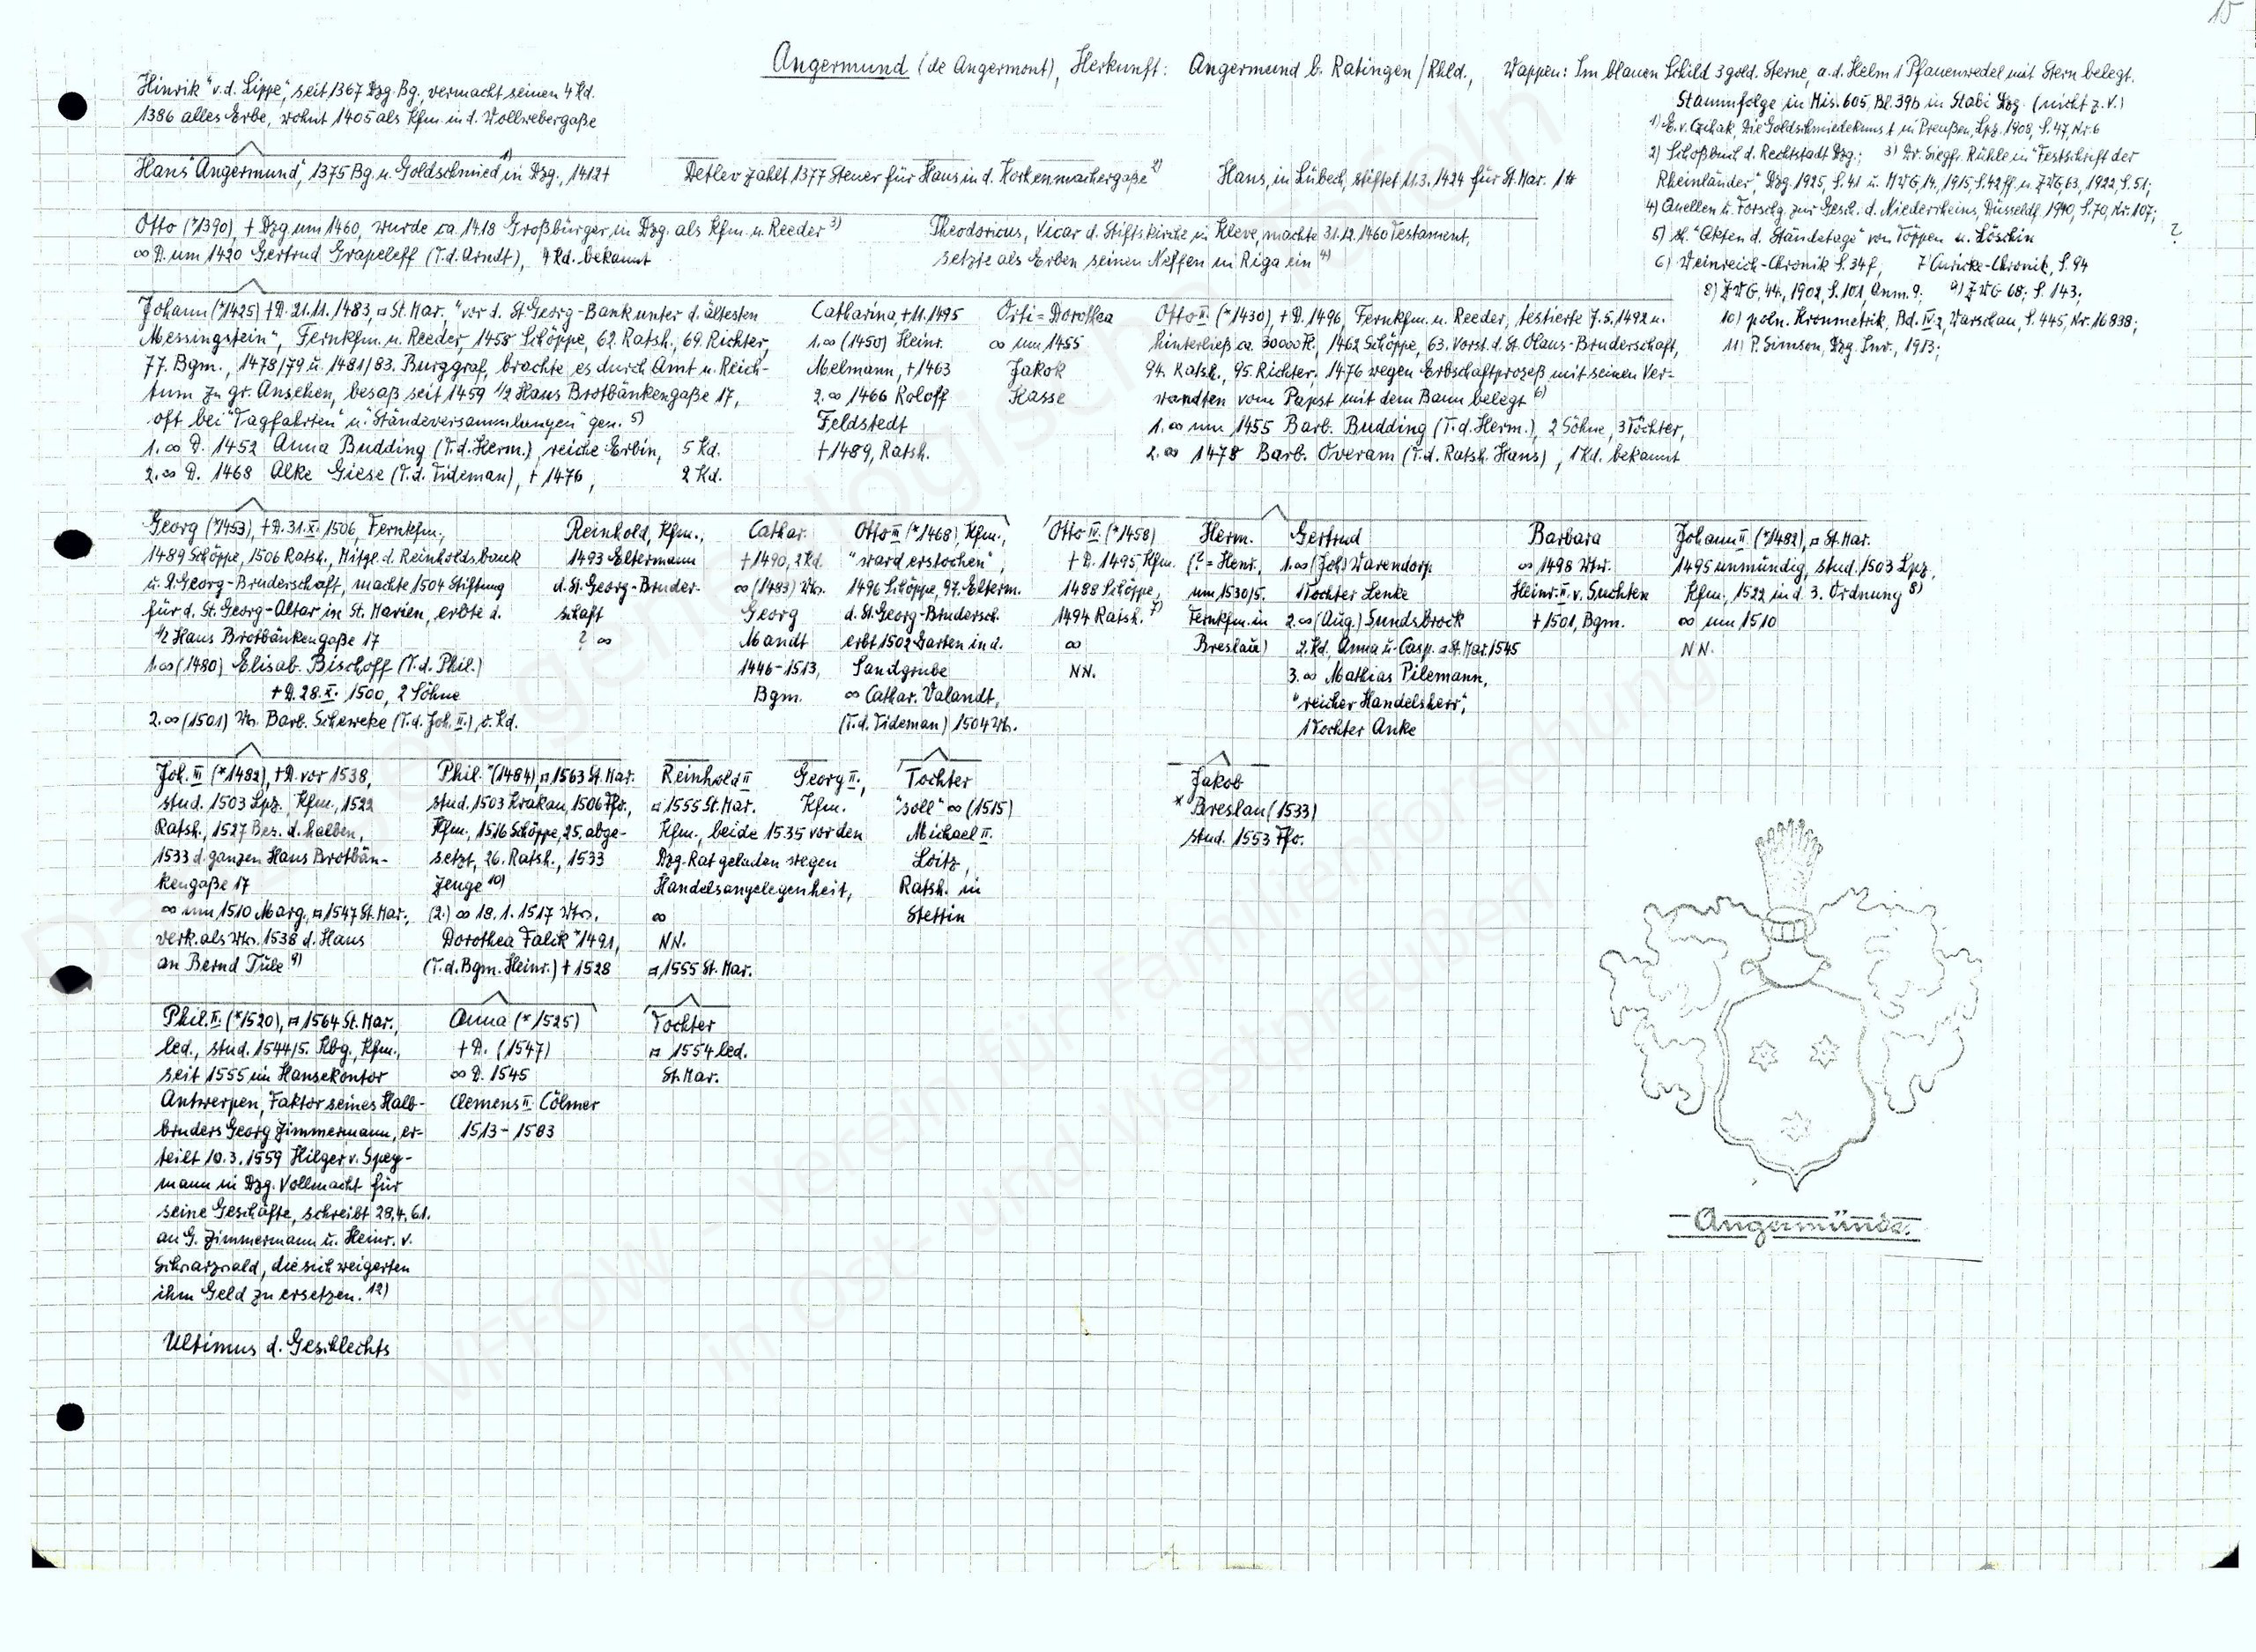 15
Angermund (de Angermont), Herkunft: Angermund b. Ratingen/Rhld., Wappen: Im blauen Schild 3 gold. Sterne, a.d. Helm 1 Pfauenwedel mit Stern belegt.
Stammfolge in Mis. 605, Bl. 39b in Stabi Dzg. (nicht z.V.)
1) E.v. Czihak, Die Goldschmiedekunst in Preußen, Lpz. 1908, S. 47, Nr. 6
2) Schoßbuch d. Rechtstadt Dzg.; 3) Dr. Siegfr. Rühle in "Festschrift der
Rheinländer", Dzg. 1925, S. 41 u. MWG, 14, 1915, S. 42 ff. u. ZWG, 63, 1922, S. 51;
4) Quellen u. Forschg. zur Gesch. d. Niederrheins, Düsseldf. 1940, S. 70, Nr. 107;
5) s. "Akten d. Ständetage" von Töppen u. Löschin ?
6) Weinreich-Chronik S. 34f, 7 Curicke-Chronik, S. 94
8) ZWG, 44, 1902, S. 101, Anm. 9; 9) ZWG 68; S. 143;
10) poln. Kronmetrik, Bd. IV.2, Warschau, S. 445, Nr. 16838;
11) P. Simson, Dzg. Inv., 1913;
Hinrik "v.d. Lippe", seit 1367 Dzg. Bg., vermacht seinen 4 Kd.
1386 alles Erbe, wohnt 1405 als Kfm. in d. Wollwebergaße
Hans "Angermund", 1375 Bg. u. Goldschmied 1) in Dzg., 1412 †
Detlev zahlt 1377 Steuer für Haus in d. Korkenmachergaße 2)
Hans, in Lübeck, stiftet 11.3.1424 für St. Mar. 1
Otto (*1390), † Dzg. um 1460, wurde ca. 1418 Großbürger in Dzg. als Kfm. u. Reeder 3)
∞ D. um 1420 Gertrud Grapeleff (T.d. Arndt), 4 Kd. bekannt
Theodoricus, Vicar d. Stiftskirche in Kleve, machte 31.12.1460 Testament,
setzte als Erben seinen Neffen in Riga ein 4)
Johann (*1425) † D. 21.11.1483, ¤ St. Mar., "vor d. St. Georg-Bank unter d. ältesten
Messingstein", Fernkfm. u. Reeder, 1458 Schöppe, 62. Ratsh., 69. Richter,
77. Bgm., 1478/79 u. 1481/83. Burggraf, brachte es durch Amt u. Reich-
tum zu gr. Ansehen, besaß seit 1459 1/2 Haus Brotbänkengaße 17,
oft bei "Tagfahrten" u. Ständeversammlungen gen. 5)
1. ∞ D. 1452 Anna Budding (T.d. Herm.), reiche Erbin, 5 Kd.
2. ∞ D. 1468 Alke Giese (T.d. Tideman), † 1476, 2 Kd.
Catharina, † 11.1495
1. ∞ (1450) Heinr.
Melmann, † 1463
2. ∞ 1466 Roloff
Feldstedt
† 1489, Ratsh.
Orti = Dorothea
∞ um 1455
Jakob
Kasse
Otto II (*1430), † D. 1496, Fernkfm. u. Reeder, testierte 7.5.1492 u.
hinterließ ca. 30000 M, 1462 Schöppe, 63. Vorst. d. St. Olaus-Bruderschaft,
94. Ratsh., 95. Richter. 1476 wegen Erbschaftprozeß mit seinen Ver-
wandten vom Papst mit dem Bann belegt 6)
1. ∞ um 1455 Barb. Budding (T.d. Herm.), 2 Söhne, 3 Töchter,
2. ∞ 1478 Barb. Overam (T.d. Ratsh. Hans), 1 Kd. bekannt
Georg (*1453), † D. 31.X. 1506, Fernkfm.,
1489 Schöppe, 1506 Ratsh., Mitgl. d. Reinholdsbank
u. St. Georg-Bruderschaft, machte 1504 Stiftung
für d. St. Georg-Altar in St. Marien, erbte d.
1/2 Haus Brotbänkengaße 17
1. ∞ (1480) Elisab. Bischoff (T.d. Phil.)
† D. 28.X. 1500, 2 Söhne
2. ∞ (1501) Ww. Barb. Scheweke (T.d. Joh. II.), o. Kd.
Reinhold, Kfm.,
1493 Eltermann
d. St. Georg-Bruder-
schaft
? ∞
Cathar.
† 1490, 2 Kd.
∞ (1483) Ww.
Georg
Mandt
1446-1513,
Bgm.
Otto III (*1468), Kfm.,
"ward erstochen",
1496 Schöppe, 97. Elterm.
d. St. Georg-Brudersch.
erbt 1502 Garten in d.
Sandgrube
∞ Cathar. Valandt,
(T.d. Tideman) 1504 Ww.
Otto IV. (*1458)
† D. 1495, Kfm.
1488 Schöppe,
1494 Ratsh. 7)
∞
NN.
Herm.
(? = Henr.,
um 1530/5.
Fernkfm. in
Breslau)
Gertrud
1. ∞ (Joh.) Warendorp
1 Tochter Lenke
2. ∞ (Aug.) Sundsbrock
2 Kd. Anna u. Casp. ¤ St. Mar. 1545
3. ∞ Mathias Pilemann,
"reicher Handelsherr",
1 Tochter Anke
Barbara
∞ 1498 Wwr.
Heinr. II. v. Suchten
† 1501, Bgm.
Johann II (*1482), ¤ St. Mar.
1495 unmündig, stud. 1503 Lpz.,
Kfm., 1522 in d. 3. Ordnung 8)
∞ um 1510
NN.
Joh. III (*1482), † D. vor 1538,
stud. 1503 Lpz. Kfm., 1522
Ratsh., 1527 Bes. d. halben,
1533 d. ganzen Haus Brotbän-
kengaße 17
∞ um 1510 Marg., ¤ 1547 St. Mar.,
verk. als Ww. 1538 d. Haus
an Bernd Tüle 9)
Phil. *(1484), ¤ 1563 St. Mar.
stud. 1503 Krakau, 1506 Ffo.,
Kfm., 1516 Schöppe, 25. abge-
setzt, 26. Ratsh., 1533
Zeuge 10)
(2.) ∞ 18.1.1517 Ww.
Dorothea Falck *1491,
(T.d. Bgm. Heinr.) † 1528
Reinhold II
¤ 1555 St. Mar.
Georg II.,
Kfm.
Kfm., beide 1535 vor den
Dzg. Rat geladen wegen
Handelsangelegenheit,
∞
NN.
¤ 1555 St. Mar.
Tochter
"soll" ∞ (1515)
Michael II.
Loitz,
Ratsh. in
Stettin
Jakob
* Breslau (1533)
stud. 1553 Ffo.
Phil. II. (*1520), ¤ 1564 St. Mar.,
led., stud. 1544/5. Kbg., Kfm.,
seit 1555 im Hansekontor
Antwerpen, Faktor seines Halb-
bruders Georg Zimmermann, er-
teilt 10.3.1559 Hilger v. Spey-
mann in Dzg. Vollmacht für
seine Geschäfte, schreibt 28.4.61.
an G. Zimmermann u. Heinr. v.
Schwarzwald, die sich weigerten
ihm Geld zu ersetzen. 12)
Anna (*1525)
† D. (1547)
∞ D. 1545
Clemens II. Cölmer
1513-1583
Tochter
¤ 1554 led.
St. Mar.
Ultimus d. Geschlechts
Angermünde.